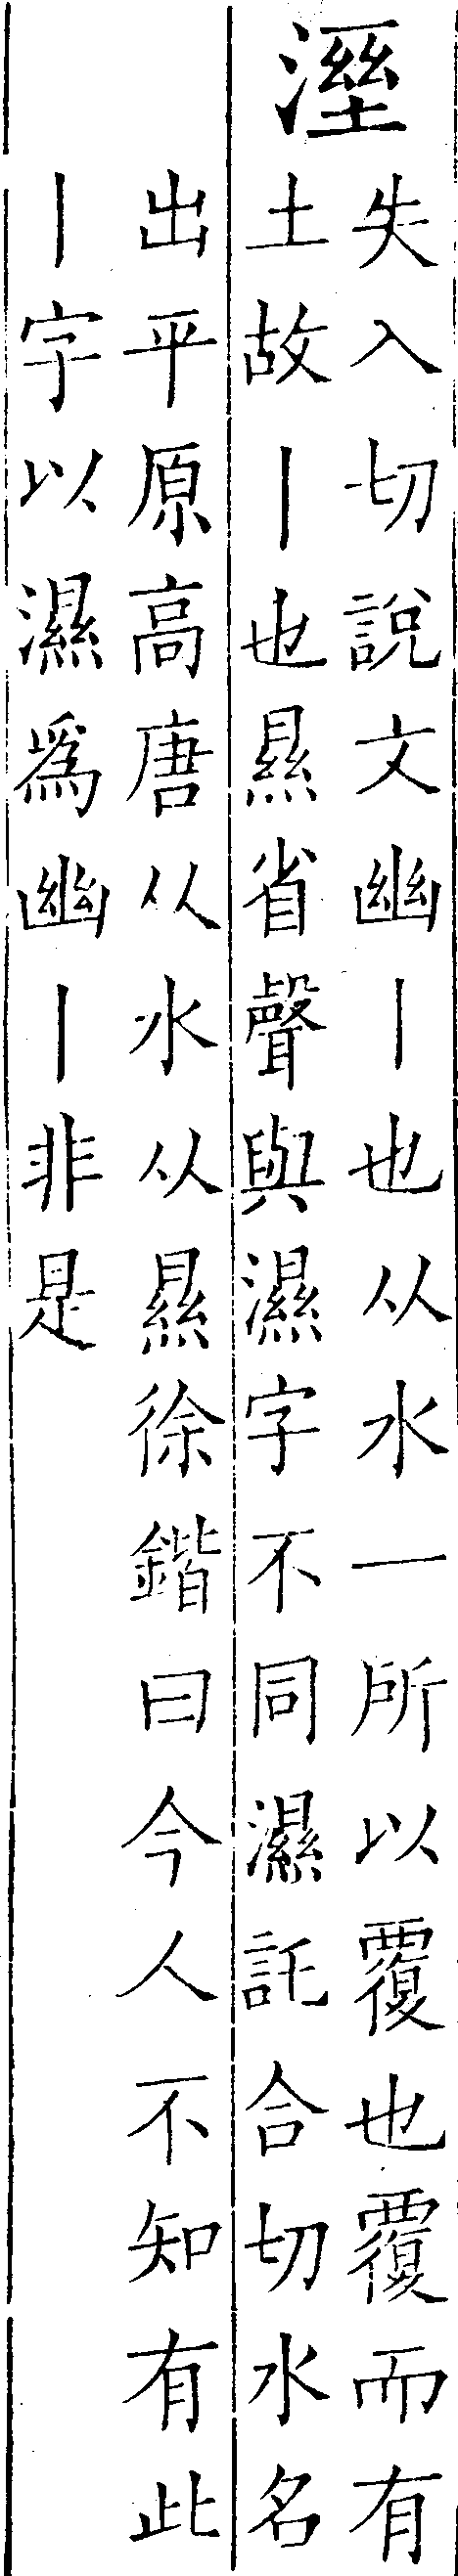 溼
失入切說文幽丨也从水一所以覆也覆而有
土故丨也㬎省聲與濕字不同濕託合切水名
出平原高唐从水从㬎徐鍇曰今人不知有此
丨字以濕爲幽丨非是